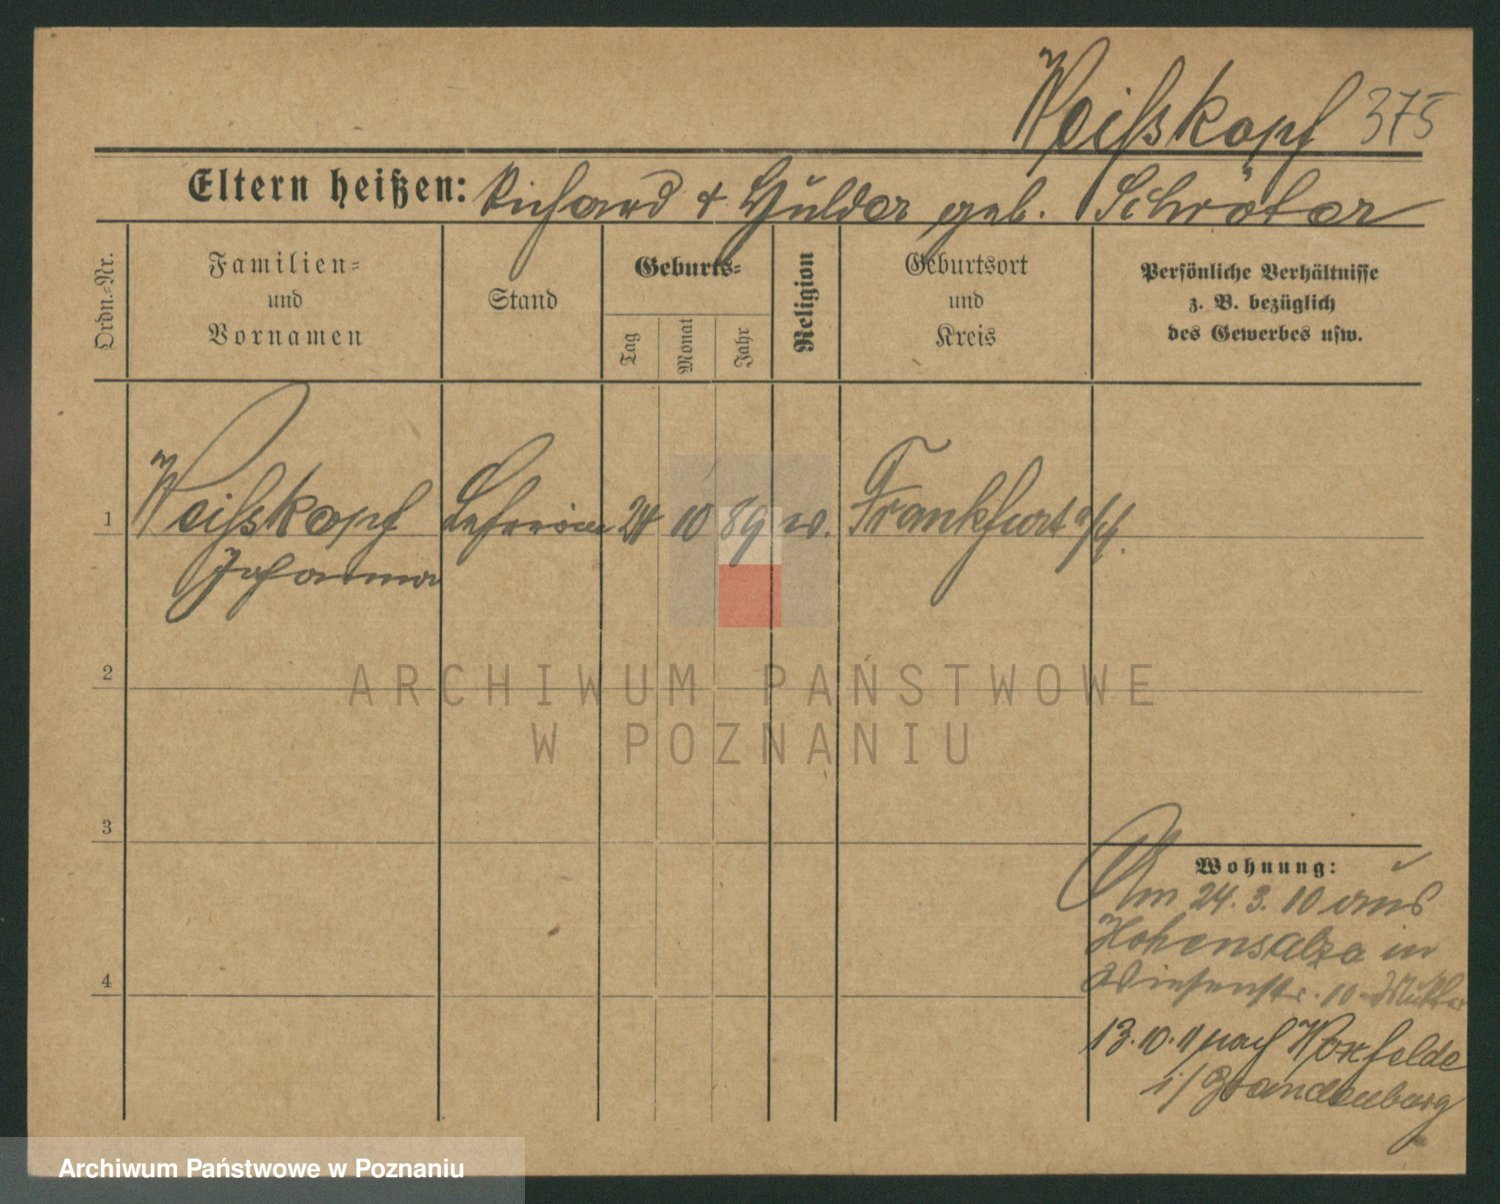 Weißkopf 375
Eltern heißen: Richard + Hulda geb. Schröter
Ordn.=Nr.
Familien=
und
Vornamen
Stand
Geburts=
Tag
Monat
Jahr
Religion
Geburtsort
und
Kreis
Persönliche Verhältnisse
z. B. bezüglich
des Gewerbes usw.
1
Weißkopf
Johanna
Lehrerin
24
10
89
ev.
Frankfurt a/
2
ARCHIWUM PAŃSTWOWE
W POZNANIU
3
Wohnung:
Am 24. 3. 10 aus
Hohensalza in
Wiesenstr. 10
4
13. 10. 11 nach
i/ Brandenburg
Archiwum Państwowe w Poznaniu